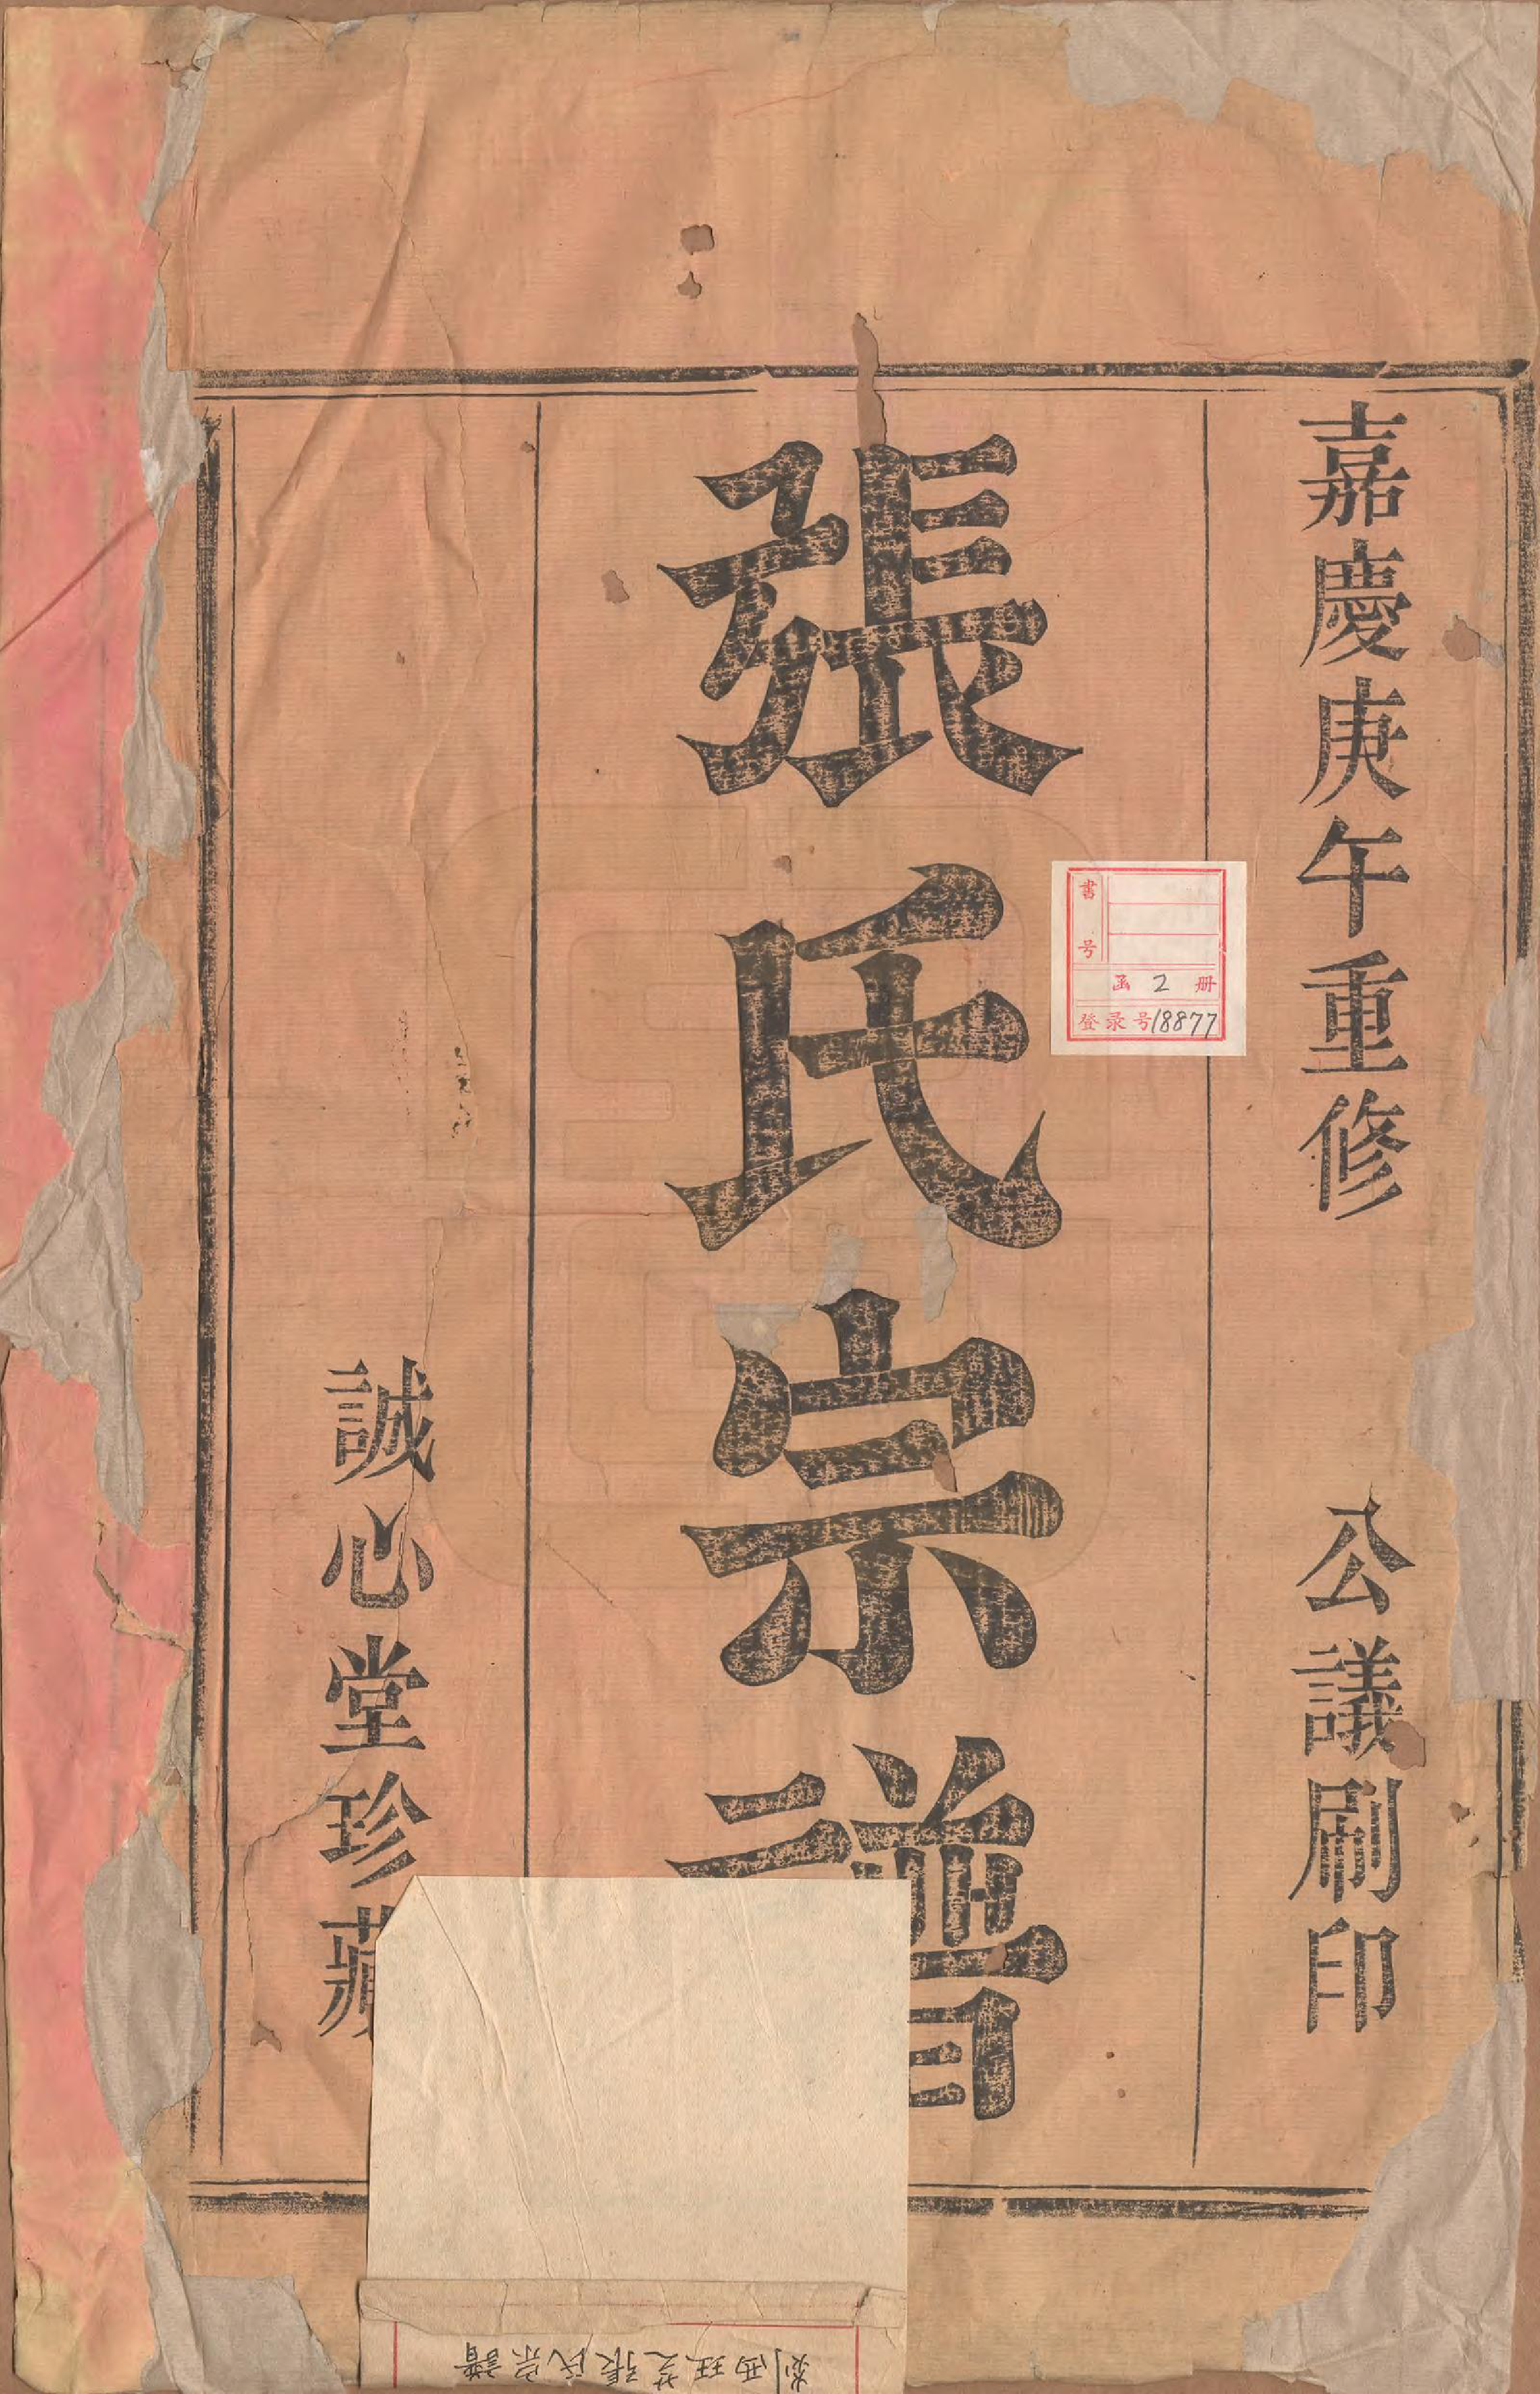 嘉慶庚午重修 公議刷印
張氏宗譜
誠心堂珍藏
書号
函 2 册
登录号18877
剡西珏芝張氏宗譜